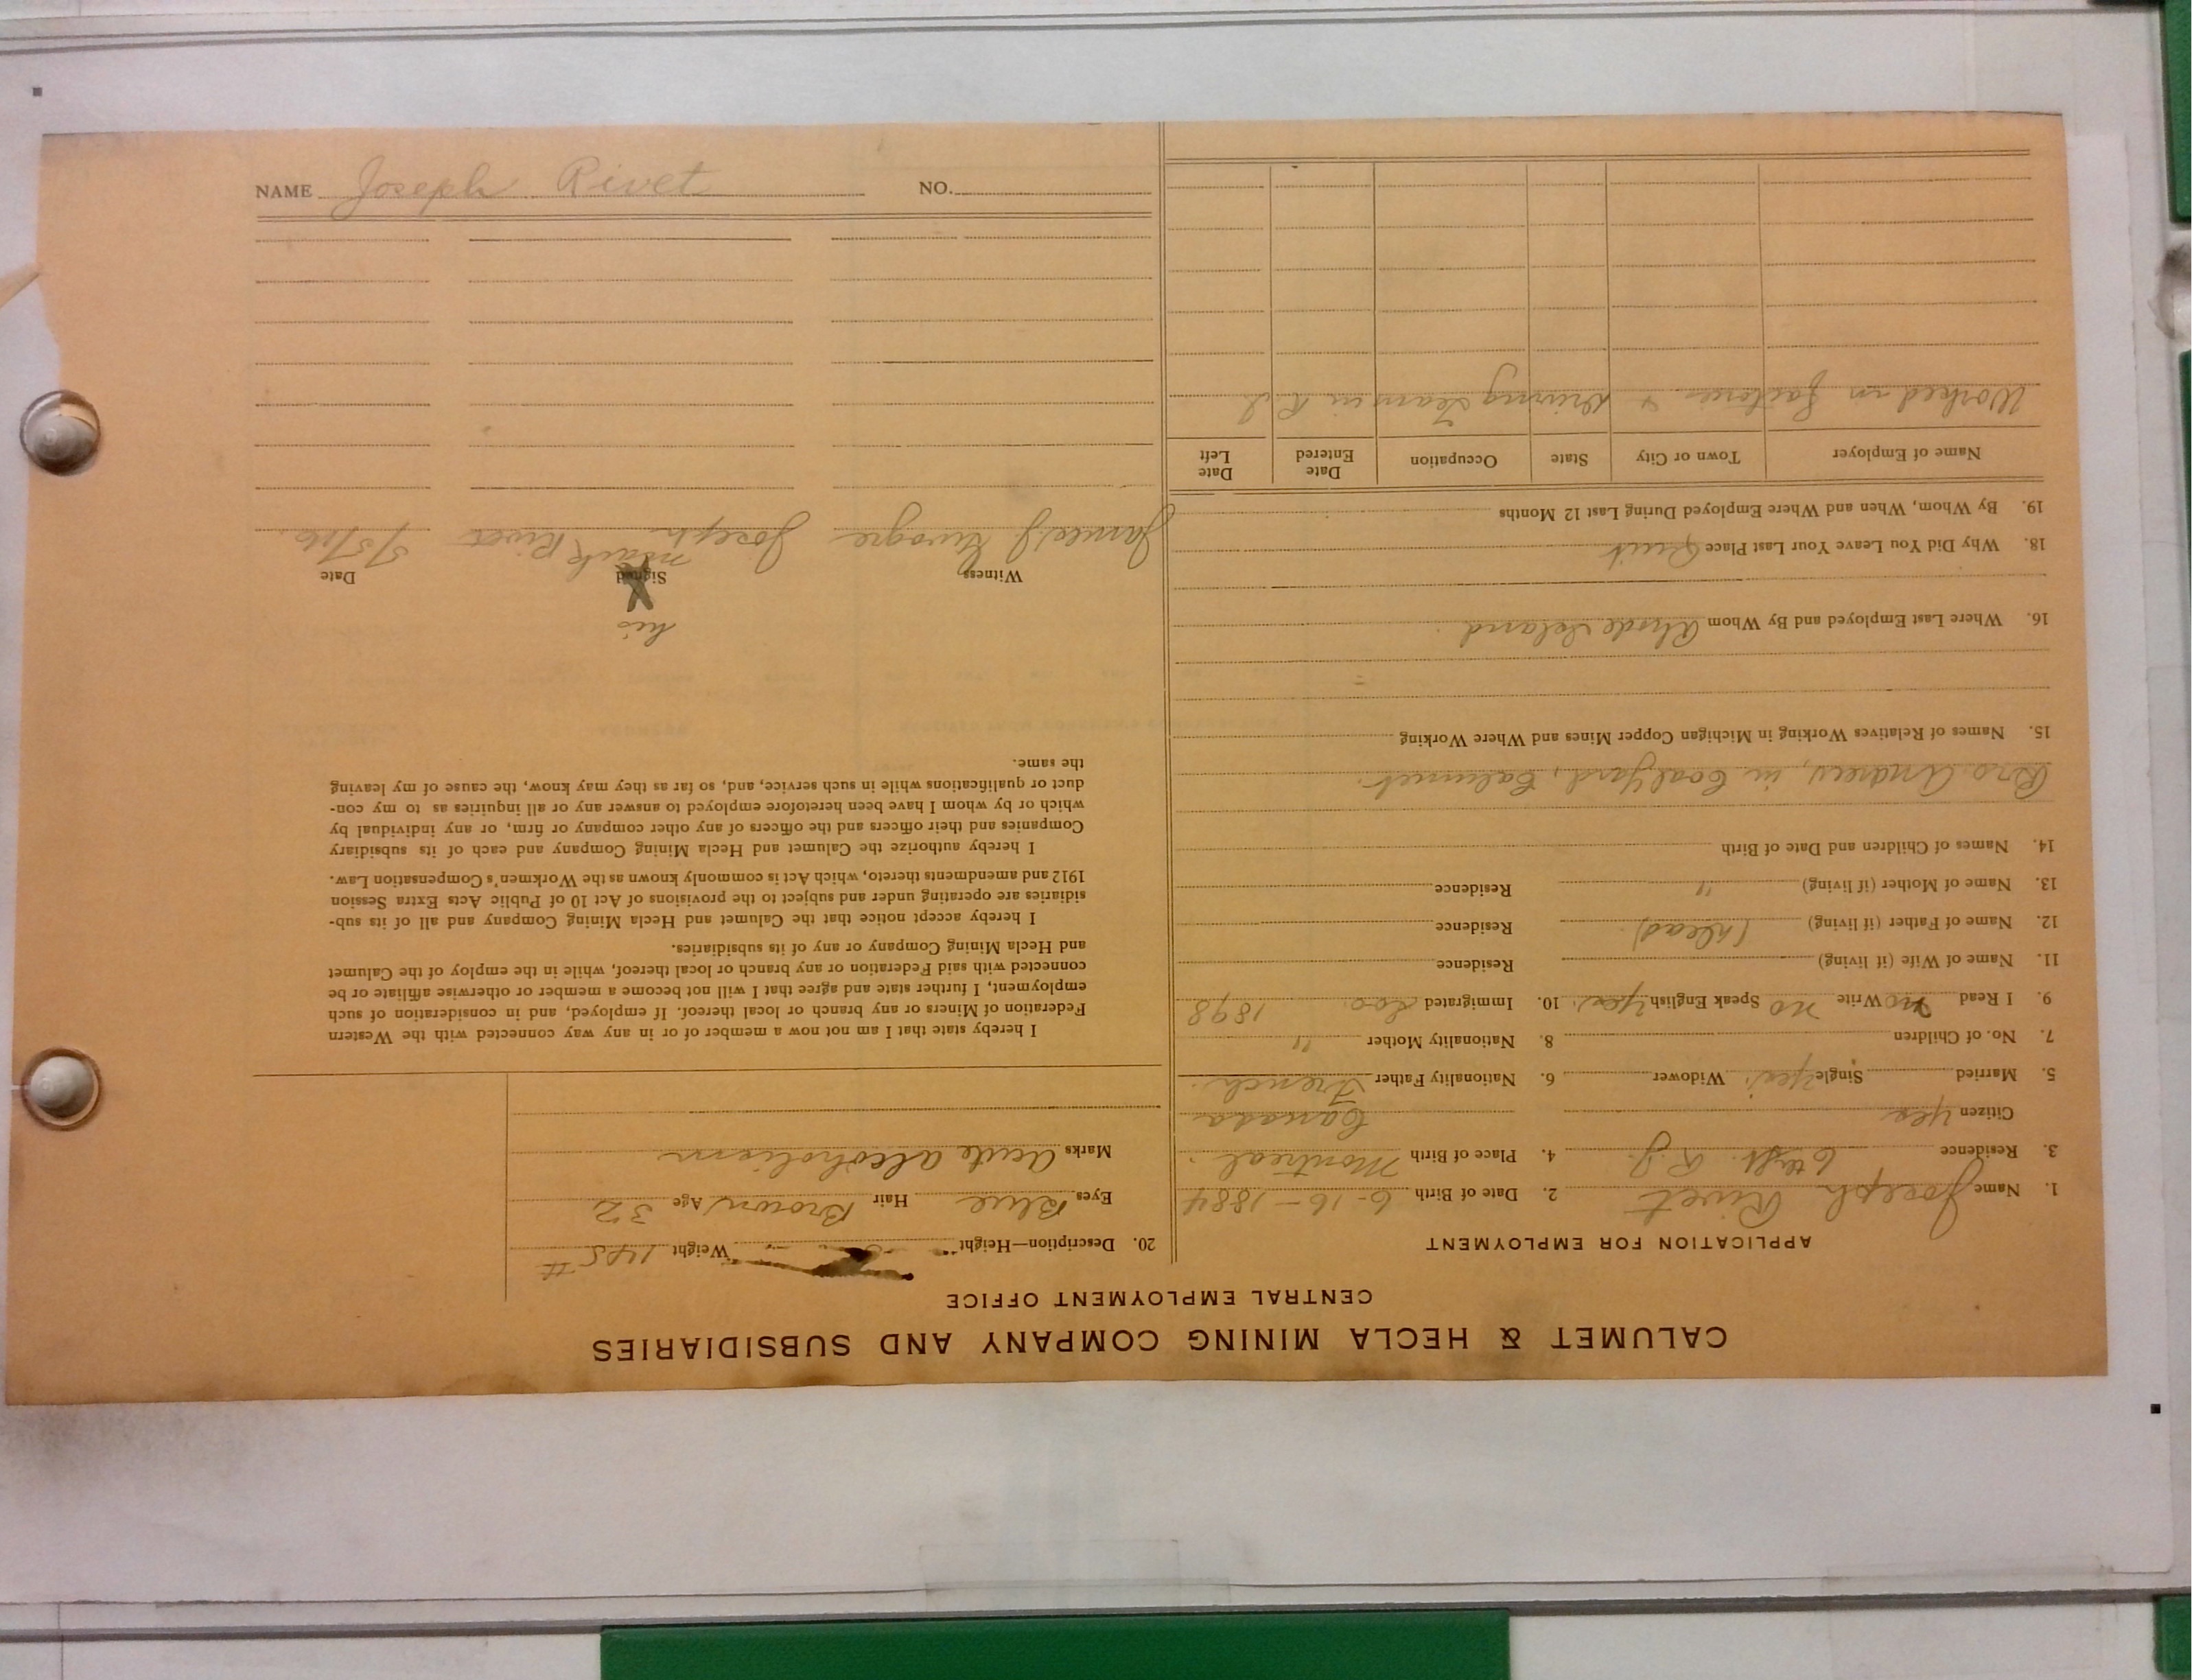 CALUMET & HECLA MINING COMPANY AND SUBSIDIARIES
CENTRAL EMPLOYMENT OFFICE
APPLICATION FOR EMPLOYMENT
1. Name Joseph Rivet 2. Date of Birth 6-16-1884
3. Residence R.I. 4. Place of Birth Montreal.
Citizen yes Canada
5. Married Single yes. Widower 6. Nationality Father French.
7. No. of Children 8. Nationality Mother "
9. I Read no Write no Speak English yes. 10. Immigrated Soo. 1898
11. Name of Wife (if living) Residence
12. Name of Father (if living) (dead) Residence
13. Name of Mother (if living) " Residence
14. Names of Children and Date of Birth
Bro. Andrew, in Coal Yard, Calumet.
15. Names of Relatives Working in Michigan Copper Mines and Where Working
16. Where Last Employed and By Whom Rhode Island.
18. Why Did You Leave Your Last Place Quit
19. By Whom, When and Where Employed During Last 12 Months
Name of Employer Town or City State Occupation Date Entered Date Left
Worked in factories + driving team in R.I
20. Description—Height Weight 145 #
Eyes Blue Hair Brown Age 32
Marks Acute alcoholism
I hereby state that I am not now a member of or in any way connected with the Western
Federation of Miners or any branch or local thereof. If employed, and in consideration of such
employment, I further state and agree that I will not become a member or otherwise affiliate or be
connected with said Federation or any branch or local thereof, while in the employ of the Calumet
and Hecla Mining Company or any of its subsidiaries.
I hereby accept notice that the Calumet and Hecla Mining Company and all of its sub-
sidiaries are operating under and subject to the provisions of Act 10 of Public Acts Extra Session
1912 and amendments thereto, which Act is commonly known as the Workmen's Compensation Law.
I hereby authorize the Calumet and Hecla Mining Company and each of its subsidiary
Companies and their officers and the officers of any other company or firm, or any individual by
which or by whom I have been heretofore employed to answer any or all inquiries as to my con-
duct or qualifications while in such service, and, so far as they may know, the cause of my leaving
the same.
his
Witness Signed X Date
mark
James J. Joseph Rivet
NAME Joseph Rivet NO.